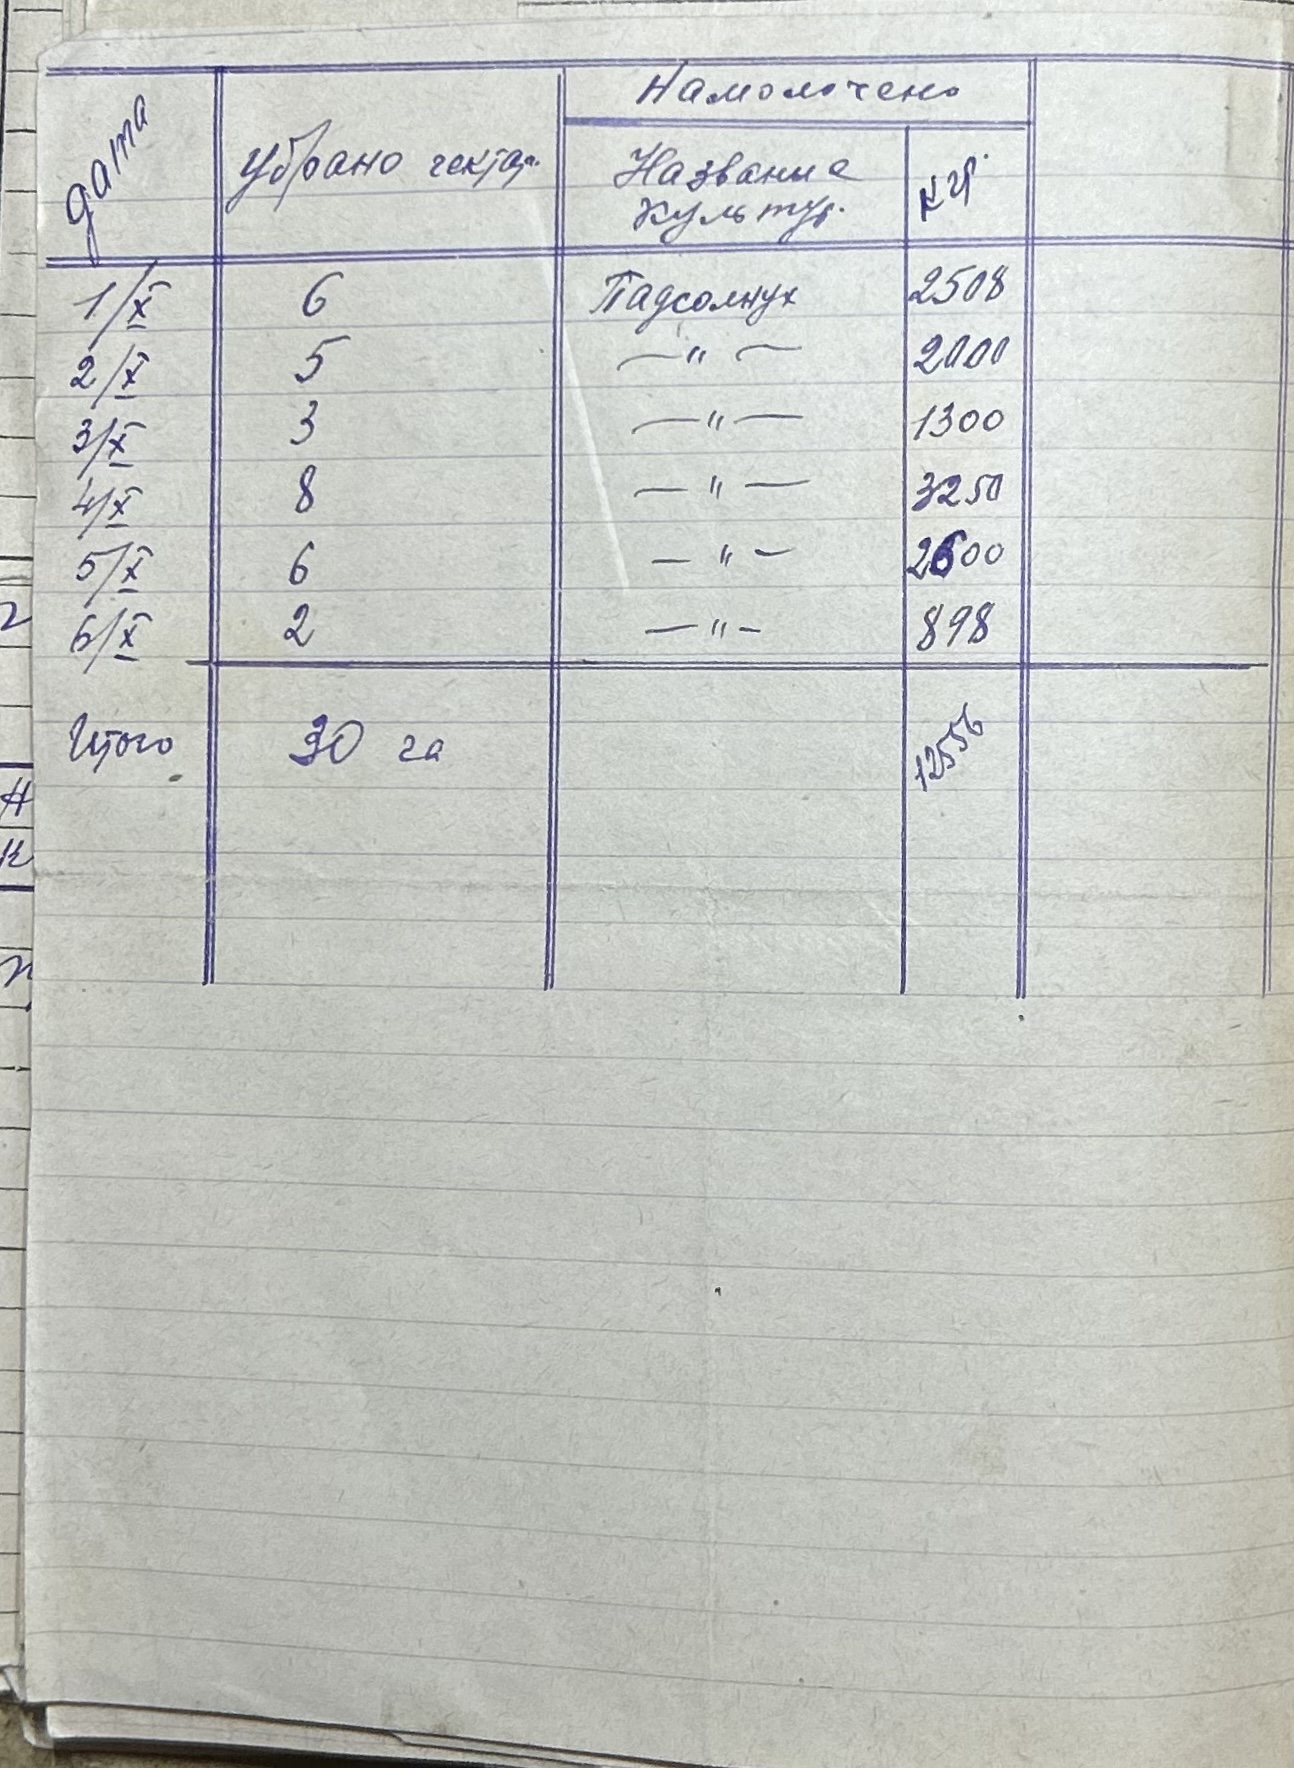 Намолочено
дата убрано гектар. Название культур. кгр.
1/X 6 Падсолнух 2508
2/X 5 —"— 2000
3/X 3 —"— 1300
4/X 8 —"— 3250
5/X 6 —"— 2600
6/X 2 —"— 898
Итого 30 га 12556